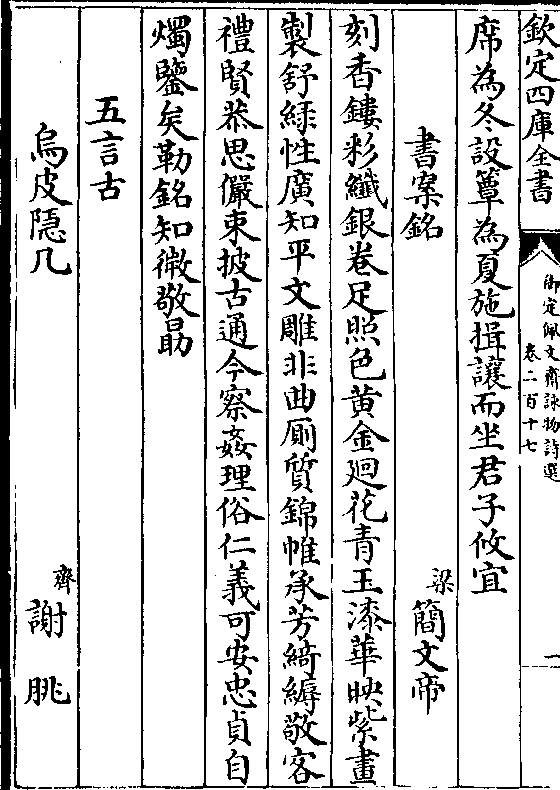 欽定四庫全書
御定佩文齋詠物詩選
卷二百十七
一
席為冬設簟為夏施揖讓而坐君子攸宜
書案銘
梁
簡文帝
刻香鏤彩纖銀卷足照色黄金廻花青玉漆華映紫畫
製舒綠性廣知平文雕非曲厠質錦帷承芳綺縟敬客
禮賢恭思儼束披古通今察姦理俗仁義可安忠貞自
燭鑒矣勒銘知微敬勗
五言古
烏皮隱几
齊
謝朓